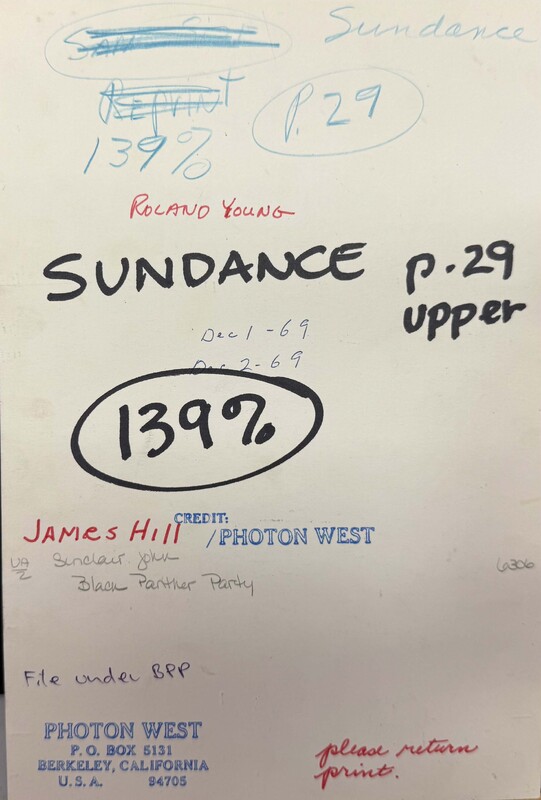 Sundance
Reprint
P. 29
139%
Roland Young
SUNDANCE p. 29
upper
Dec 1 - 69
Dec 2 - 69
139%
CREDIT:
JAMES Hill / PHOTON WEST
UA
2
Sinclair, John
Black Panther Party
6306
File under BPP
PHOTON WEST
P.O. BOX 5131
BERKELEY, CALIFORNIA
U.S.A. 94705
please return
print.